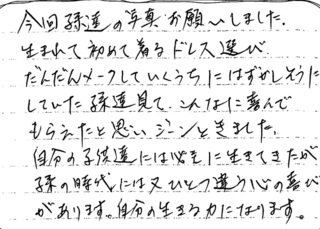 今回孫達の写真お願いしました。
生まれて初めて着るドレス選び
だんだんメークしていくうちにはずかしそうに
していた孫達見て、こんなに喜んで
もらえたと思いジーンときました。
自分の子供達には必死に生きてきたが
孫の時代には又ひとつ違う心の喜び
があります。自分の生きる力になります。